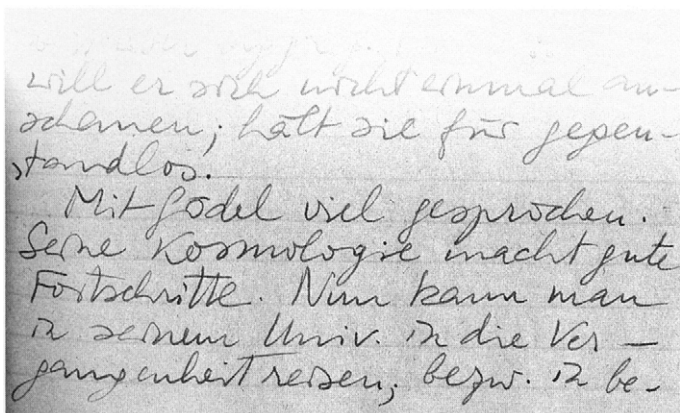 will er sich nicht einmal an-
schauen; hält sie für gegen-
standlos.
Mit Gödel viel gesprochen.
Seine Kosmologie macht gute
Fortschritte. Nun kann man
in seinem Univ. in die Ver-
gangenheit reisen, bezw. in be-